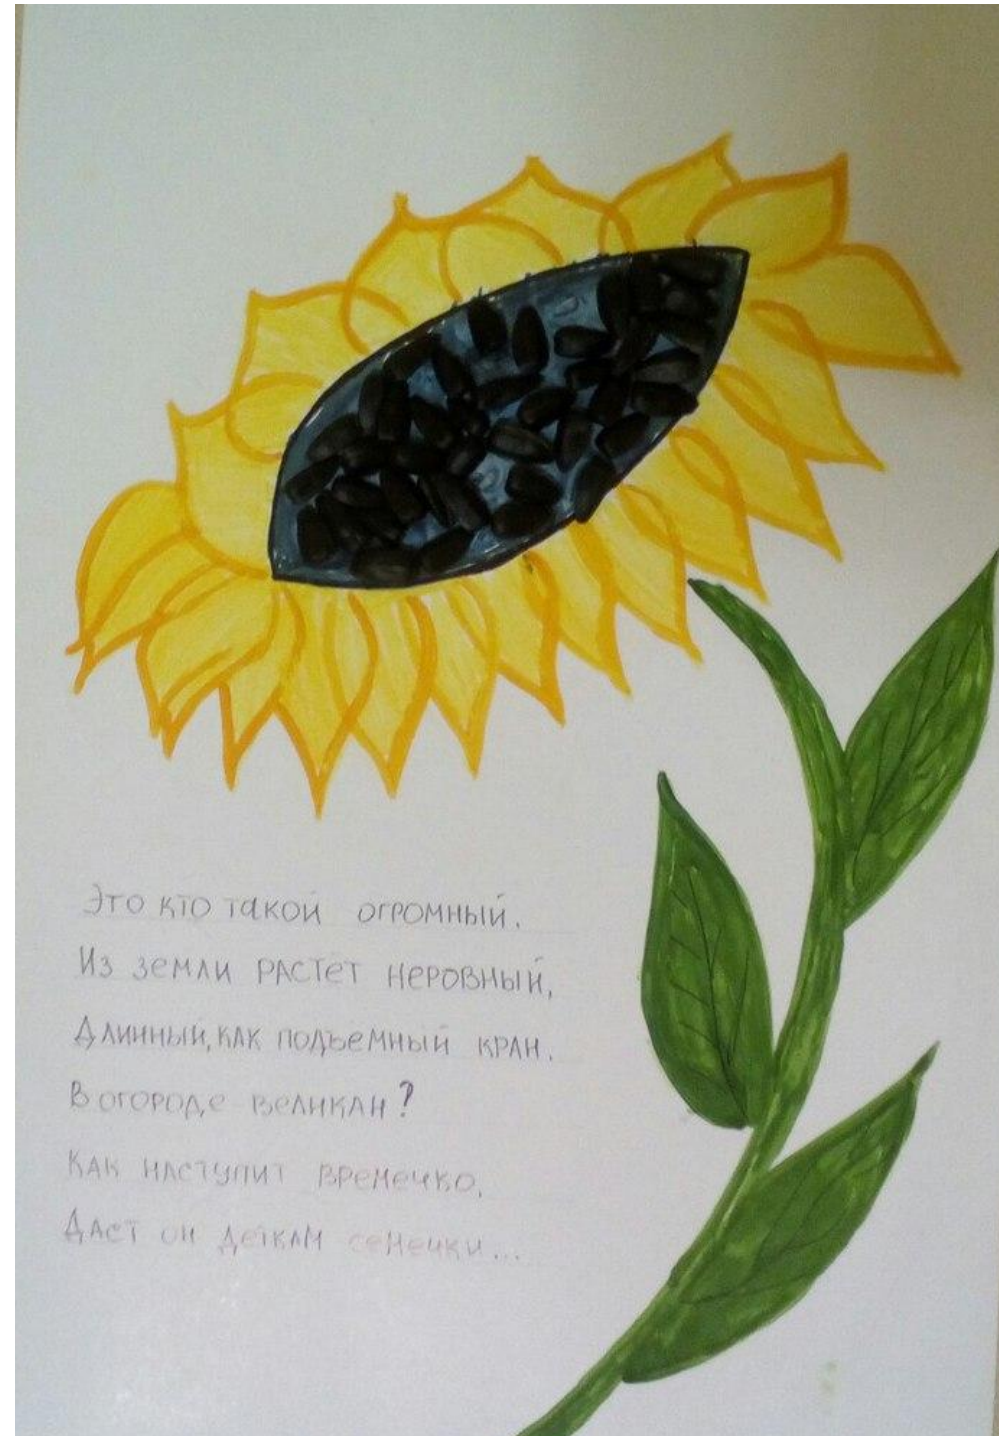 Это кто такой огромный.
Из земли растет неровный,
Длинный, как подъемный кран.
В огороде великан?
Как наступит времечко,
Даст он деткам семечки...